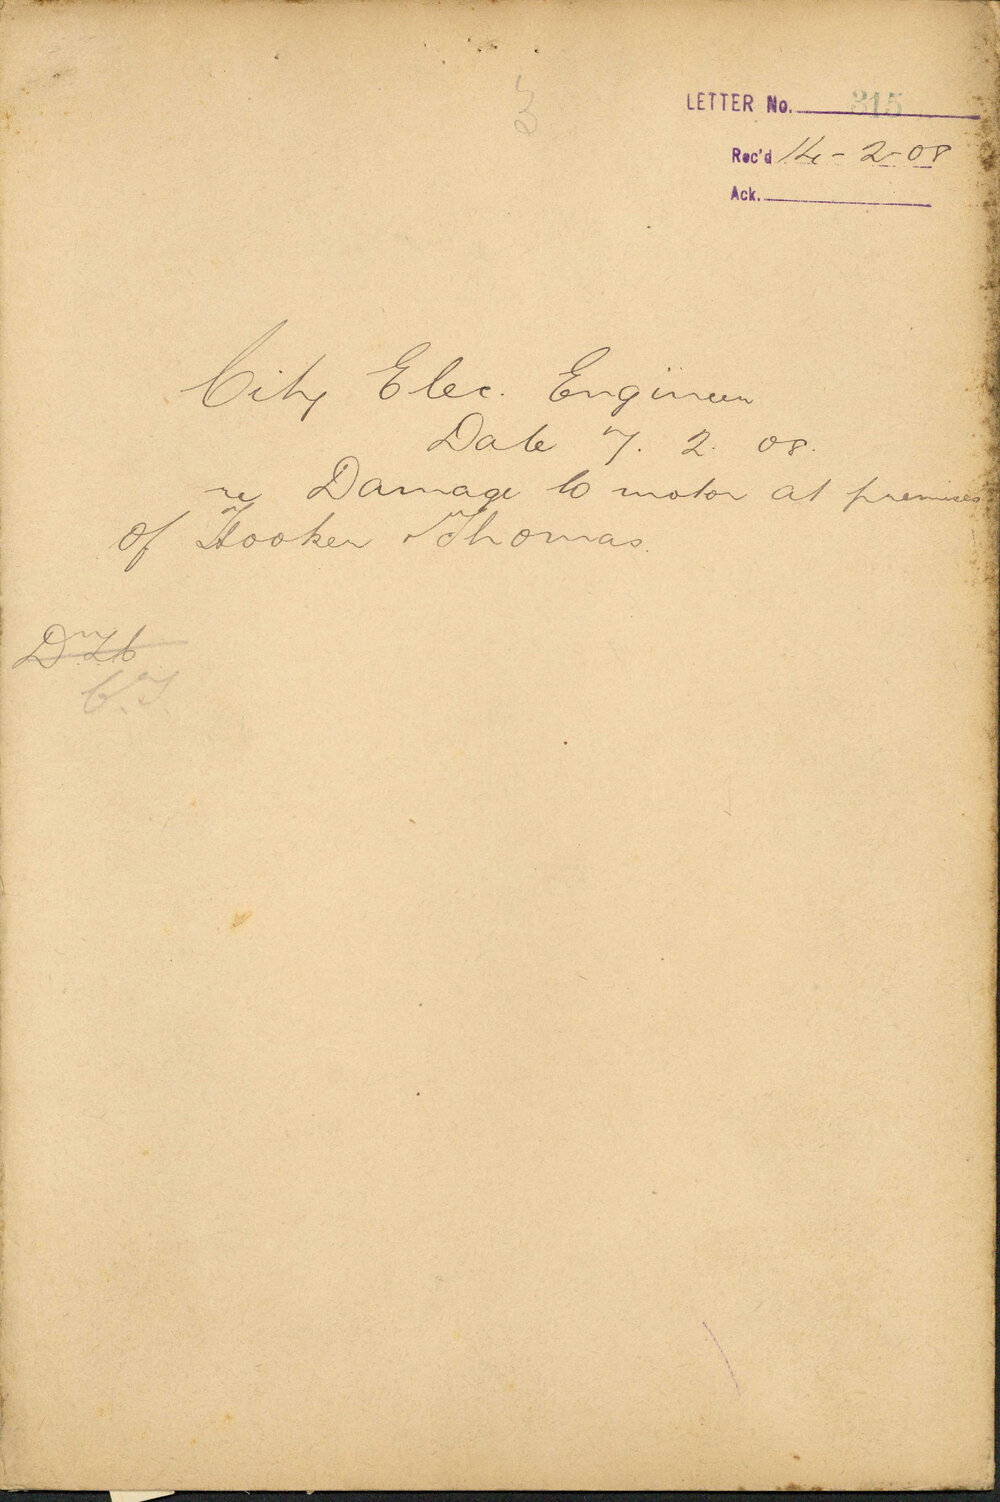 LETTER No. 315
Rec'd 14-2-08
Ack.
City Elec. Engineer
Date 7. 2. 08.
re Damage to motor at premises
of Hooker Thomas.
C.T.